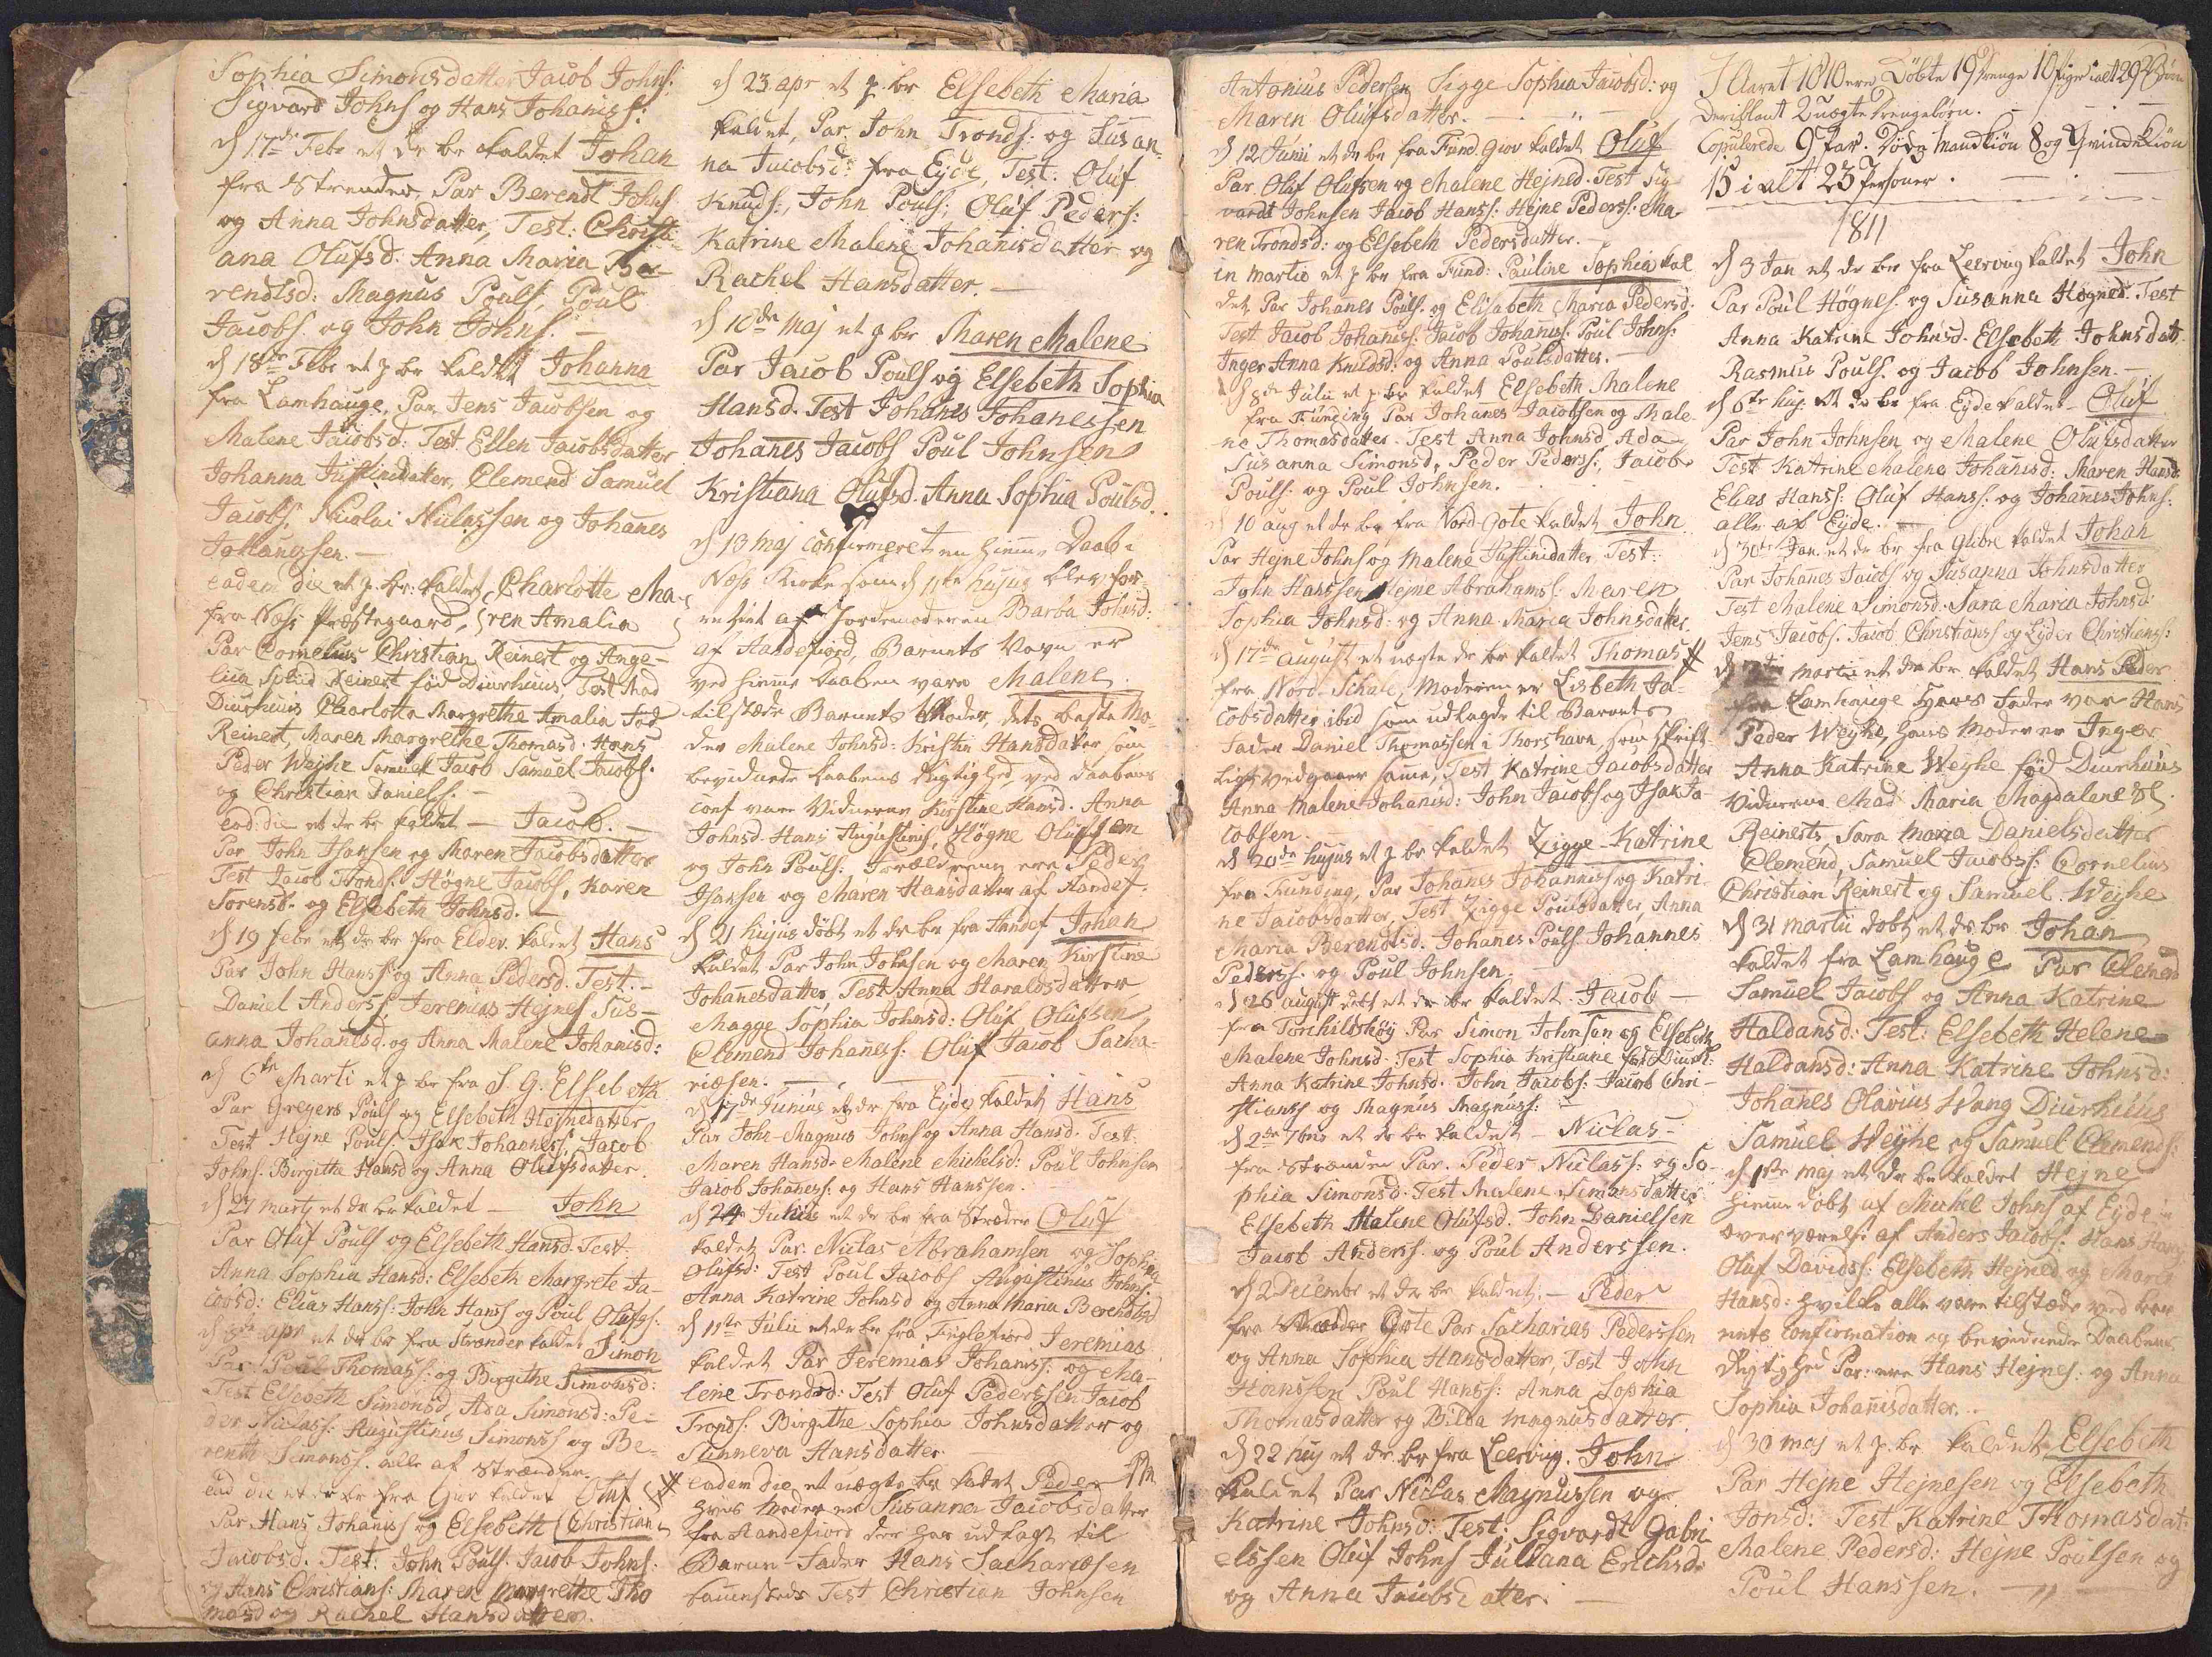 Sophia Simonsdatter Jacob Johns:
Sigvard Johns og Hans Johaniss:
d 17de Febr et dr br kaldet Johan
fra Strender, Par Berendt Johns
og Anna Johnsdatter, Test: Christi-
ana Olufsd. Anna Maria Be-
rendtsd: Magnus Pouls, Poul
Jacobs. og John Johns. —
d 18de Febr et p br kaldet Johanna
fra Lamhauge, Par Jens Jacobsen og
Malene Jacobsd: Test Ellen Jacobsdatter
Johanna Justinidatter, Clemend Samuel
Jacobs, Nicolai Niclassen og Johanes
Johanessen. —
eadem die et p. br: kaldet Charlotte Ma-
fra Næss Præstegaard, ren Amalia
Par Cornelius Christian Reinert og Ange-
lica Reinert fød Diurhuus, Test Mad
Diurhuus Charlotta Margrethe Amalia fød
Reinert, Maren Margrethe Thomasd. Hans
Peder Weyhe Samuel Jacob Samuel Jacobs.
og Christian Daniels: —
ead: die et dr br kaldet — Jacob. —
Par John Isaksen og Maren Jacobsdatter
Test Jacob Tronds: Høgne Jacobs, Karen
Sorensd. og Elsebeth Johnsd. —
d 19 febr et dr br fra Eldev. kaldet Hans
Par John Hanss og Anna Pedersd. Test. —
Daniel Anderss, Jeremias Hejnes Sus-
anna Johanesd. og Anna Malene Johanisd:
d 6te Marti et p br fra S. G. Elsebeth
Par Gregers Pouls og Elsebeth Højnedatter
Test Hejne Pouls. Isak Johaness, Jacob
Johns. Birgitha Hansd og Anna Olufsdatter.
d 27 marty et dr br kaldet — John
Par Oluf Pouls og Elsebeth Hansd. Test.
Anna Sophia Hansd: Elsebeth Margrete Ja-
cobsd: Elias Hanss: John Hanss og Poul Olufss:
d 8de apr et dr br fra Strender kaldet Simon
Par Poul Thomass: og Birgithe Simonsd:
Test Elsebeth Simonsd, Ada Simonsd: Pe-
der Niclass: Augustinus Simonss og Be-
renth Simonss. alle af Strænder.
ead die et dr br fra Giov kaldet Oluf
Par Hans Johaniss og Elsebeth Christian
Jacobsd. Test: John Pouls. Jacob Johns.
og Hans Christians: Maren Margrethe Tho
masd og Rachel Hansdatter.
d 23 apr et p. br Elsebeth Maria
kaldet, Par. John Tronds: og Susan-
na Jacobsd: fra Eyde, Test. Oluf
Knuds:, John Pouls; Oluf Peders:
Katrine Malene Johanisdatter og
Rachel Hansdatter. —
d 10de Maj et p br Maren Malene
Par Jacob Pouls og Elsebeth Sophia
Hansd. Test Johanes Johanessen
Johanes Jacobs Poul Johnsen
Kristiana Olufsd. Anna Sophia Poulsd.
d 13 maj confirmeret en hieme Daab i
Næss Kirke som d 11te hujus blev for-
rettet af Jordemoderen Barba Johnsd:
af Handefiord, Barnets Navn er
ved hieme daaben være Malene.
tilstæde Barnets Moder, dets beste Mo-
der Malene Johnsd: Kristin Hansdatter som
bevidnede daabens Rigtighed, ved daabens
conf vare Vidnerne Kirstine Hansd. Anna
Johnsd. Hans Augustins, Høgne Olufsen
og John Pouls: Forældrene ere Peder
Isaksen og Maren Hansdatter af Handef.
d 21 hujus døbt et dr br fra Handef Johan
kaldet Par John Johnsen og Maren Kirstine
Johanesdatter, Test Anna Haraldsdatter
Magge Sophia Johnsd: Oluf Olufsen
Clemend Johaness: Oluf Jacob Sacha-
riæsen. —
d 17de Junius et dr fra Eyde kaldet Hans
Par John Magnus Johns og Anna Hansd. Test:
Maren Hansd. Malene Michelsd: Poul Johnsen
Jacob Johaness: og Hans Hanssen.
d 24 Junius et dr br fra Strædre Oluf
kaldet Par. Niclas Abrahamsen og Sophia
Olufsd: Test Poul Jacobs Augustinus Johns.
Anna Katrine Johnsd og Anna Maria Berendtsd
d 11te Julii et dr br fra Fuglefiord Jeremias
kaldet Par Jeremias Johaniss: og Ma-
lene Trondsd: Test Oluf Pederssen Jacob
Tronds. Birgithe Sophia Johnsdatter og
Sunneva Hansdatter
eadem die et uægte br kaldet Peder
hvis Moder er Susanna Jacobsdatter
fra Handefiord der har udlagt til
Barne-Fader Hans Sachariæsen
samesteds Test Christian Johnsen
Antonius Pedersen Sigge Sophia Jacobsd: og
Maren Olufsdatter. —
d 12 Junii et dr br fra Fund. Giov kaldet Oluf
Par Oluf Olufsen og Malene Hejned. Test Sig-
vardt Johnsen Jacob Hanss: Hejne Pederss: Ma-
ren Trondsd: og Elsebeth Pedersdatter.
in martio et p br fra Fund: Pauline Sophia kal
det, Par Johanes Pouls. og Elisabeth Maria Pedersd.
Test Jacob Johaniss. Jacob Johaness. Poul Johns:
Inger Anna Knudsd: og Anna Poulsdatter. —
d 8de Julii et p br kaldet Elsebeth Malene
fra Funding Par Johanes Jacobsen og Male-
ne Thomasdatter. Test Anna Johnsd, Ada
Susanna Simonsd, Peder Pederss, Jacob
Pouls: og Poul Johnsen.
d 10 aug et dr br fra Nord Gote kaldet John
Par Hejne Johns og Malene Justinidatter Test:
John Hanssen Hejne Abrahams: Maren
Sophia Johnsd: og Anna Maria Johnsdatter
d 17de august et uægte dr br kaldet Thomas #
fra Nord-Schale, Moderen er Lisbeth Ja-
cobsdatter ibid som udlagde til Barnets
Fader Daniel Thomassen i Thorshavn, som skrift-
ligt vedgaaer samme, Test Katrine Jacobsdatter
Anna Malene Johanisd: John Jacobs og Isak Ja-
cobsen.
d 20de hujus et p br kaldet Zigge Katrine
fra Funding, Par Johanes Johaniss og Katri-
ne Jacobsdatter, Test Zigge Poulsdatter, Anna
Maria Berendtsd. Johanes Pouls. Johannes
Pederss. og Poul Johnsen.
d 26 august døbt et dr br kaldet Jacob —
fra Torchildshøy Par Simon Johnsen og Elsebeth
Malene Johnsd. Test Sophia Kristiane fød Diurh:
Anna Katrine Johnsd. John Jacobs: Jacob Chri-
stianss og Magnus Magnuss: —
d 2de 7bris et dr br kaldet — Niclas —
fra Strænder Par. Peder Niclass: og So-
phia Simonsd. Test Malene Simonsdatter
Elsebeth Malene Olufsd. John Danielsen
Jacob Anderss. og Poul Anderssen.
d 2 Decembr et dr br kaldet. — Peder
fra Gote Par Sacharias Pederssen
og Anna Sophia Hansdatter, Test John
Hanssen Poul Hanss: Anna Sophia
Thomasdatter og Bilda Magnusdatter.
d 22 huj et dr. br fra Leervig. John
kaldet Par Niclas Magnussen og
Katrine Johnsd: Test: Sigvardt Gabri
elssen Oluf Johns Julliana Erichsd:
og Anna Jacobsdatter. —
I Aaret 1810 ere Døbte 19 Drenge 10 Piger ialt 29 Børn
Deriblant 2 uægte Drengebørn.
Copulerede 9 Par. Døde Mandkiøn 8 og Qvindekiøn
15 i alt 23 Personer.
1811
d 3 Jan et dr br fra Leervig kaldet John
Par Poul Høgnes. og Susanna Høgned. Test
Anna Katrine Johnsd. Elsebeth Johnsdatt.
Rasmus Pouls. og Jacob Johnsen. —
d 6te huj. et dr br fra Eyde kaldet — Oluf
Par John Johnsen og Malene Olufsdatter
Test Katrine Malene Johanisd. Maren Hansd:
Elias Hanss: Oluf Hanss: og Johanes Johns:
alle af Eyde. —
d 30te Jan. et dr br fra Glibre kaldet Johan
Par Johanes Jacobs og Susanna Johnsdatter
Test Malene Simonsd. Sara Maria Johnsd:
Jens Jacobs. Jacob Christianss og Lyder Christianss:
d martii et dr br kaldet Hans Peder
fra Lamhauge hvis Fader var Hans
Peder Weyhe, hans Moder er Inger
Anna Katrine Weyhe fød Diurhuus
Vidnerne Mad Maria Magdalene
Reinerts, Sara Maria Danielsdatter
Clemend, Samuel Jacobss: Cornelius
Christian Reinert og Samuel Weyhe
d 31 martii døbt, et dr br Johan
kaldet fra Lamhauge Par Clemend
Samuel Jacobs og Anna Katrine
Haldansd: Test: Elsebeth Helene
Haldansd: Anna Katrine Johnsd:
Johanes Olavius Wang Diurhuus
Samuel Weyhe og Samuel Clemends:
d 1ste maj et dr br kaldet Hejne
hieme døbt af Michel Johns af Eyde i
overværelse af Anders Jacobs: Hans Hans
Oluf Davidss: Elsebeth Hejned og Maria
Hansd: hvilke alle vare tilstæde ved bar
nets Confirmation og bevidnede Daabens
Rigtighed Par: ere Hans Hejnes: og Anna
Sophia Johanisdatter.
d 30 maj et p. br kaldet Elsebeth
Par Hejne Hejnesen og Elsebeth
Jonsd: Test Katrine Thomasdat.
Malene Pedersd: Hejne Poulsen og
Poul Hanssen.